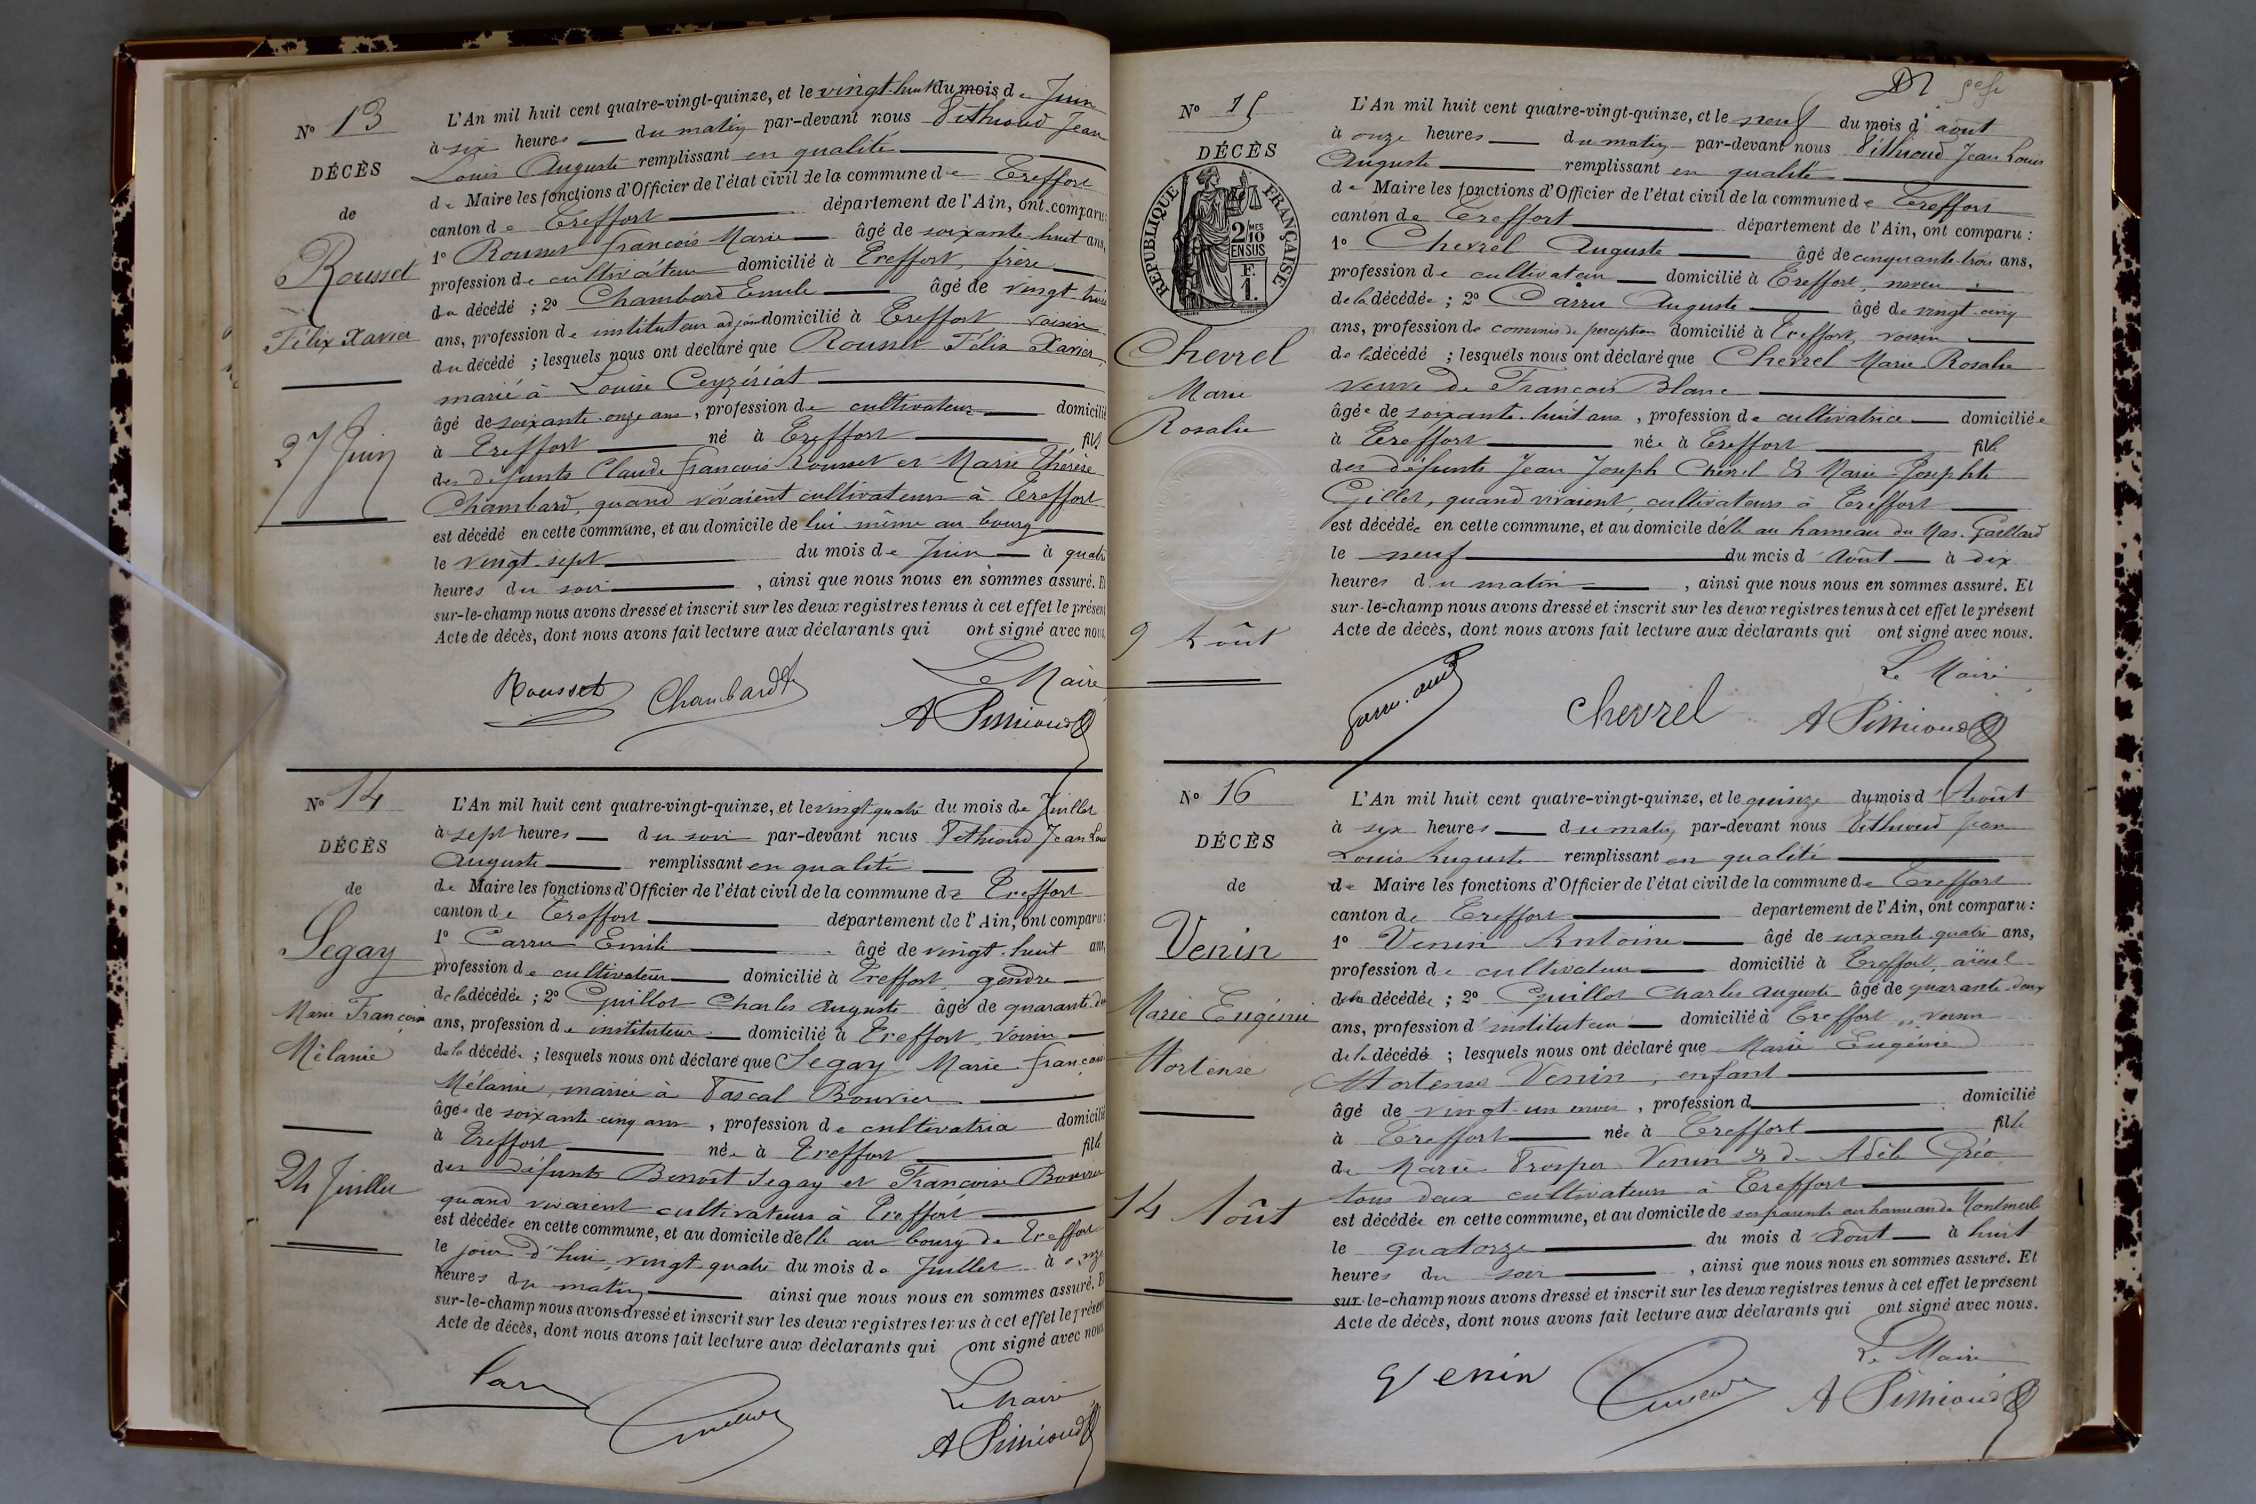 N° 13
DÉCÈS
de
Rousset
Félix Xavier
27 Juin
L'An mil huit cent quatre-vingt-quinze, et le vingt-huit du mois de Juin
à six heures du matin par-devant nous Pithioud Jean
Louis Auguste remplissant en qualité
de Maire les fonctions d'Officier de l'état civil de la commune de Treffort
canton de Treffort département de l'Ain, ont comparu:
1° Rousset François Marie âgé de soixante-huit ans,
profession de cultivateur domicilié à Treffort, frère
du décédé ; 2° Chambard Emile âgé de vingt-trois
ans, profession de instituteur adjoint domicilié à Treffort voisin
du décédé ; lesquels nous ont déclaré que Rousset Félix Xavier,
marié à Louise Ceyzériat
âgé de soixante-onze ans, profession de cultivateur domicilié
à Treffort né à Treffort fils
des défunts Claude François Rousset et Marie Thérèse
Chambard, quand vivaient cultivateurs à Treffort
est décédé en cette commune, et au domicile de lui-même au bourg
le vingt-sept du mois de Juin à quatre
heures du soir, ainsi que nous nous en sommes assuré. Et
sur-le-champ nous avons dressé et inscrit sur les deux registres tenus à cet effet le présent
Acte de décès, dont nous avons fait lecture aux déclarants qui ont signé avec nous.
Le Maire
Rousset Chambard A Pithioud
N° 14
DÉCÈS
de
Segay
Marie Françoise
Mélanie
24 Juillet
L'An mil huit cent quatre-vingt-quinze, et le vingt-quatre du mois de Juillet
à sept heures du soir par-devant nous Pithioud Jean Louis
Auguste remplissant en qualité
de Maire les fonctions d'Officier de l'état civil de la commune de Treffort
canton de Treffort département de l'Ain, ont comparu:
1° Carru Emile âgé de vingt-huit ans,
profession de cultivateur domicilié à Treffort, gendre
de la décédée ; 2° Guillot Charles Auguste âgé de quarante-deux
ans, profession de instituteur domicilié à Treffort, voisin
de la décédée ; lesquels nous ont déclaré que Segay Marie Françoise
Mélanie, mariée à Pascal Bouvier
âgée de soixante-cinq ans, profession de cultivatrice domiciliée
à Treffort née à Treffort fille
des défunts Benoît Segay et Françoise Bouvier
quand vivaient cultivateurs à Treffort
est décédée en cette commune, et au domicile d'elle au bourg de Treffort
le jour d'hui, vingt-quatre du mois de Juillet à onze
heures du matin ainsi que nous nous en sommes assuré. Et
sur-le-champ nous avons dressé et inscrit sur les deux registres tenus à cet effet le présent
Acte de décès, dont nous avons fait lecture aux déclarants qui ont signé avec nous.
Le Maire
A Pithioud
N° 15
DÉCÈS
RÉPUBLIQUE FRANÇAISE
2 MES
10
EN SUS
F.
1.
Chevrel
Marie
Rosalie
9 Août
L'An mil huit cent quatre-vingt-quinze, et le neuf du mois d'août
à onze heures du matin par-devant nous Pithioud Jean Louis
Auguste remplissant en qualité
de Maire les fonctions d'Officier de l'état civil de la commune de Treffort
canton de Treffort département de l'Ain, ont comparu :
1° Chevrel Auguste âgé de cinquante-trois ans,
profession de cultivateur domicilié à Treffort, neveu
de la décédée ; 2° Carru Auguste âgé de vingt-cinq
ans, profession de commis de perception domicilié à Treffort, voisin
de la décédé ; lesquels nous ont déclaré que Chevrel Marie Rosalie
veuve de François Blanc
âgée de soixante-huit ans, profession de cultivatrice domiciliée
à Treffort née à Treffort fille
des défunts Jean Joseph Chevrel & Marie Josephte
Gillet, quand vivaient, cultivateurs à Treffort
est décédée en cette commune, et au domicile d'elle au hameau du Mas-Gaillard
le neuf du mois d'Août à dix
heures du matin, ainsi que nous nous en sommes assuré. Et
sur-le-champ nous avons dressé et inscrit sur les deux registres tenus à cet effet le présent
Acte de décès, dont nous avons fait lecture aux déclarants qui ont signé avec nous.
Le Maire
Chevrel A Pithioud
N° 16
DÉCÈS
de
Venin
Marie Eugénie
Hortense
14 Août
L'An mil huit cent quatre-vingt-quinze, et le quinze du mois d'Août
à six heures du matin par-devant nous Pithioud Jean
Louis Auguste remplissant en qualité
de Maire les fonctions d'Officier de l'état civil de la commune de Treffort
canton de Treffort département de l'Ain, ont comparu:
1° Venin Antoine âgé de soixante-quatre ans,
profession de cultivateur domicilié à Treffort, aïeul
de la décédée ; 2° Guillot Charles Auguste âgé de quarante-deux
ans, profession d'instituteur domicilié à Treffort, voisin
de la décédé ; lesquels nous ont déclaré que Marie Eugénie
Hortense Venin, enfant
âgé de vingt-un mois, profession d domicilié
à Treffort née à Treffort fille
de Marie Prosper Venin & de Adèle Gréa
tous deux cultivateurs à Treffort
est décédée en cette commune, et au domicile de ses parents au hameau de Montmerle
le quatorze du mois d'Août à huit
heures du soir, ainsi que nous nous en sommes assuré. Et
sur-le-champ nous avons dressé et inscrit sur les deux registres tenus à cet effet le présent
Acte de décès, dont nous avons fait lecture aux déclarants qui ont signé avec nous.
Le Maire
Venin A Pithioud